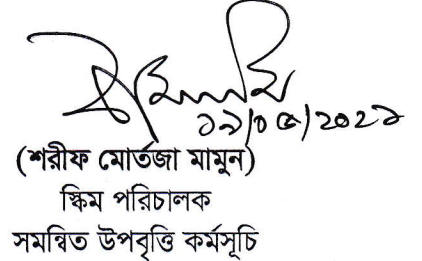 ১৯/০৫/২০২১
(শরীফ মোর্তজা মামুন)
স্কিম পরিচালক
সমন্বিত উপবৃত্তি কর্মসূচি